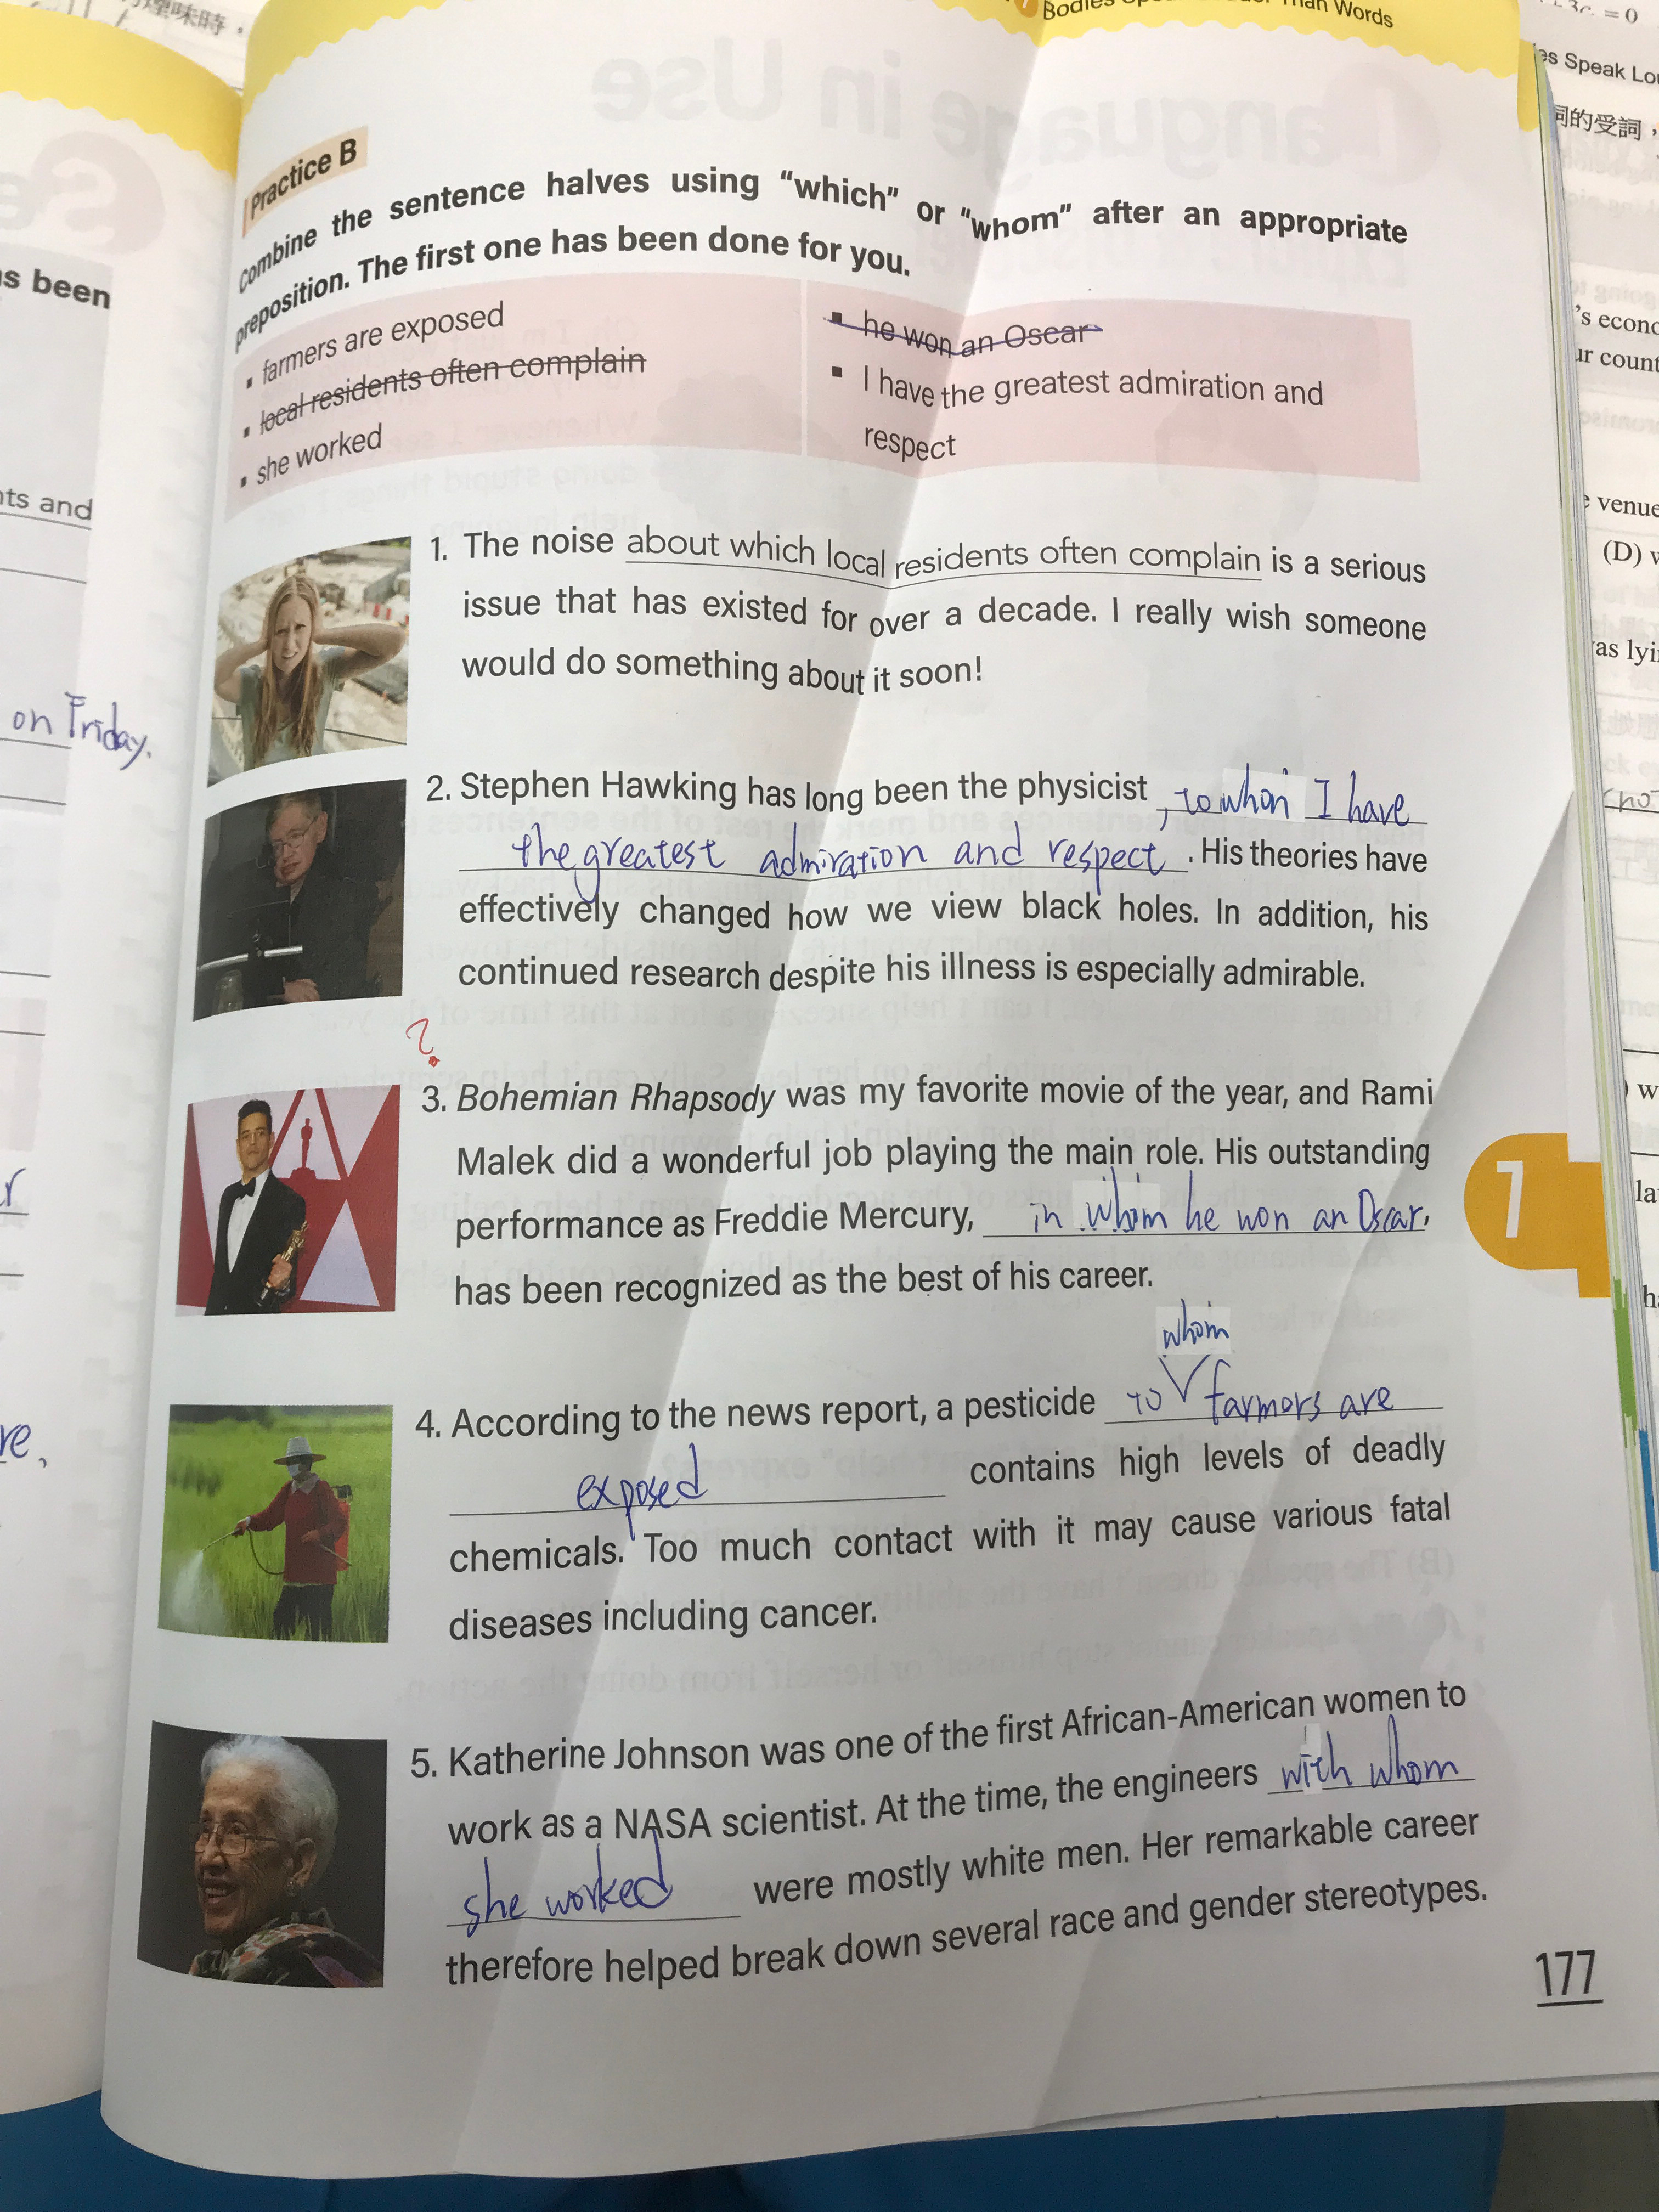 Man Words
Practice B
Combine the sentence halves using "which" or "whom" after an appropriate
preposition. The first one has been done for you.
▪ farmers are exposed
▪ local residents often complain
▪ she worked
▪ he won an Oscar
▪ I have the greatest admiration and
respect
1. The noise about which local residents often complain is a serious
issue that has existed for over a decade. I really wish someone
would do something about it soon!
2. Stephen Hawking has long been the physicist , to whom I have
the greatest admiration and respect . His theories have
effectively changed how we view black holes. In addition, his
continued research despite his illness is especially admirable.
?
3. Bohemian Rhapsody was my favorite movie of the year, and Rami
Malek did a wonderful job playing the main role. His outstanding
performance as Freddie Mercury, in whom he won an Oscar,
has been recognized as the best of his career.
whom
4. According to the news report, a pesticide to farmors are
exposed contains high levels of deadly
chemicals. Too much contact with it may cause various fatal
diseases including cancer.
5. Katherine Johnson was one of the first African-American women to
work as a NASA scientist. At the time, the engineers with whom
she worked were mostly white men. Her remarkable career
therefore helped break down several race and gender stereotypes.
7
177
s been
nts and
on Friday.
re,
煙味時，
= 0
es Speak Lo
詞的受詞，
's econo
ur count
venue
(D)
as lyi